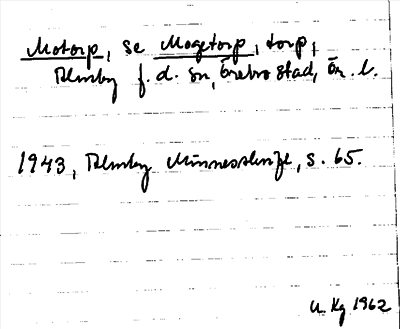 Motorp, se Mogetorp, torp,
Almby f.d. sn, Örebro stad, Ör. l.
1943, Almby Minnesskrift, s. 65.
U. Kg 1962